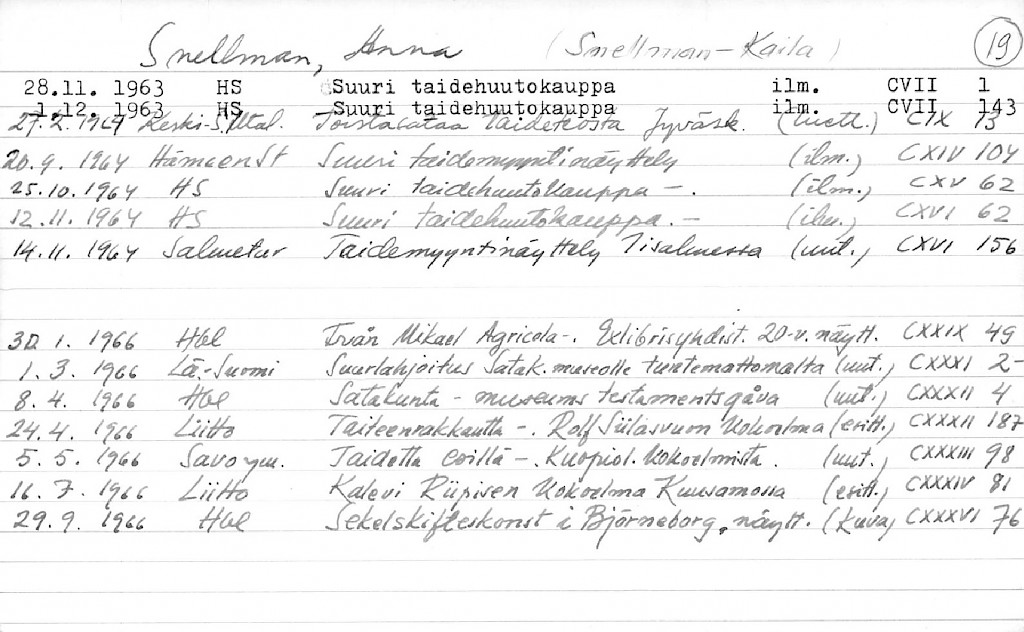 Snellman, Anna (Snellman-Kaila) 19
28.11. 1963 HS Suuri taidehuutokauppa ilm. CVII 1
1.12. 1963 HS Suuri taidehuutokauppa ilm. CVII 143
27.2. 1964 Keski-S. taideteosta Jyväsk. (luett.) CIX 13
20.9. 1964 HämeenSt Suuri taidemyyntinäyttely (ilm.) CXIV 104
25.10. 1964 HS Suuri taidehuutokauppa -. (ilm.) CXV 62
12.11. 1964 HS Suuri taidehuutokauppa. - (ilm.) CXVI 62
14.11. 1964 Salmetar Taidemyyntinäyttely Iisalmessa (uut.) CXVI 156
30.1. 1966 Hbl Från Mikael Agricola -. Exlibrisyhdist. 20-v. näytt. CXXIX 49
1.3. 1966 Lä.-Suomi Suurlahjoitus Satak. museolle tuntemattomalta (uut.) CXXXI 2-
8.4. 1966 Hbl Satakunta - museums testamentsgåva (uut.) CXXXII 4
24.4. 1966 Liitto Taiteenrakkautta -. Rolf Siilasvuon kokoelma (esitt.) CXXXII 187
5.5. 1966 Savo Taidetta esillä -. Kuopiol. kokoelmista. (uut.) CXXXIII 98
16.7. 1966 Liitto Kalevi Riipisen kokoelma Kuusamossa (esitt.) CXXXIV 81
29.9. 1966 Hbl Sekelskifteskonst i Björneborg, näytt. (kuva) CXXXVI 76